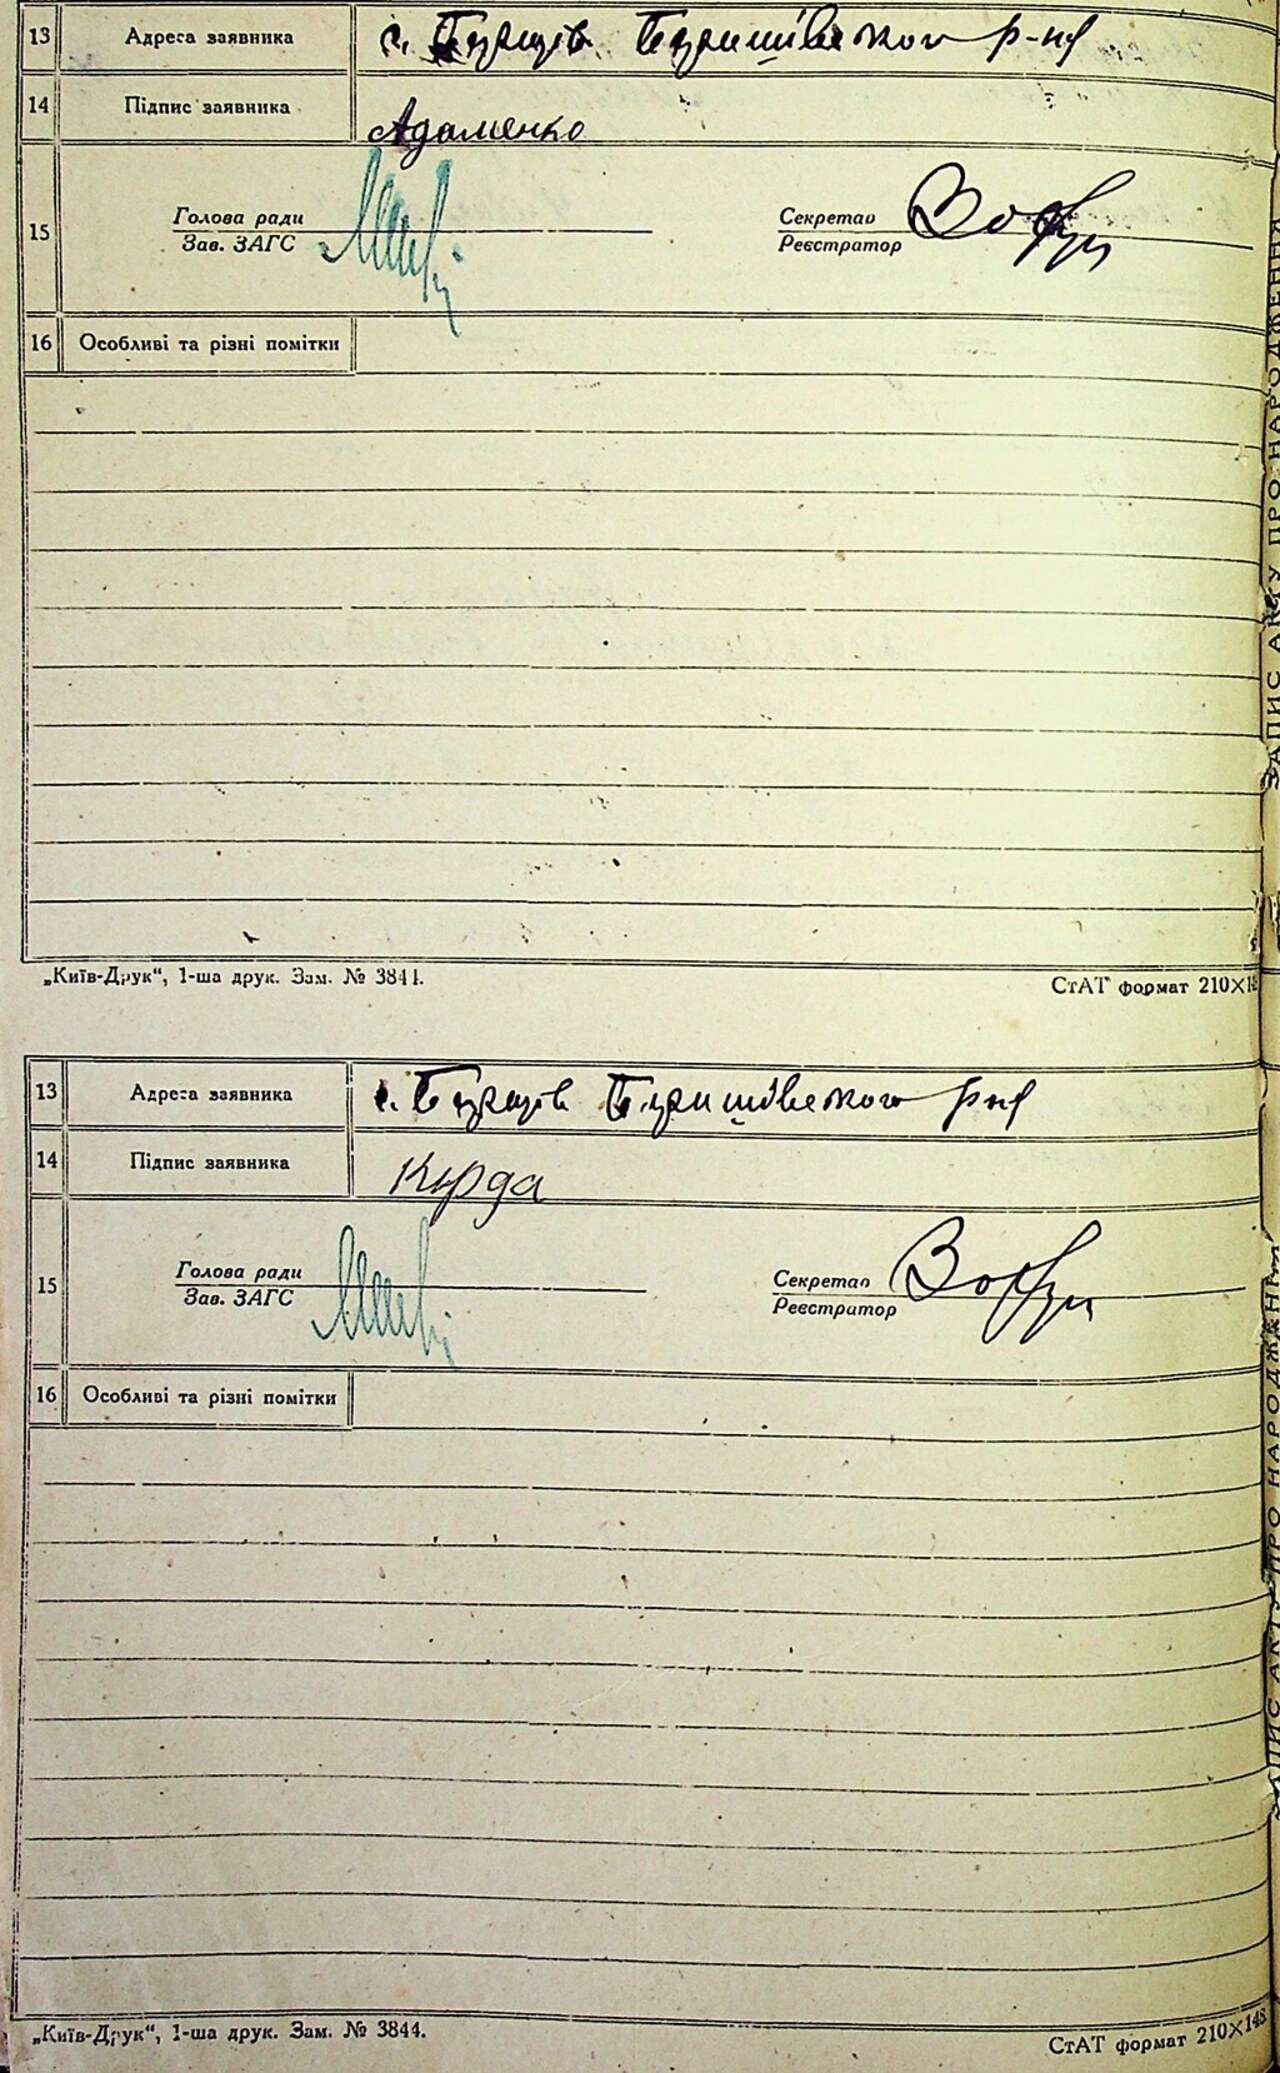 13 Адреса заявника с. Бзів Баришівського р-ну
14 Підпис заявника Адаменко
15 Голова ради Секретар
Зав. ЗАГС Реєстратор
16 Особливі та різні помітки
„Київ-Друк“, 1-ша друк. Зам. № 3844. СтАТ формат 210×14
13 Адреса заявника Баришівського р-ну
14 Підпис заявника Кирда
15 Голова ради Секретар
Зав. ЗАГС Реєстратор
16 Особливі та різні помітки
„Київ-Друк“, 1-ша друк. Зам. № 3844. СтАТ формат 210×148
ЗАПИС АКТУ ПРО НАРОДЖЕННЯ
ЗАПИС АКТУ ПРО НАРОДЖЕННЯ